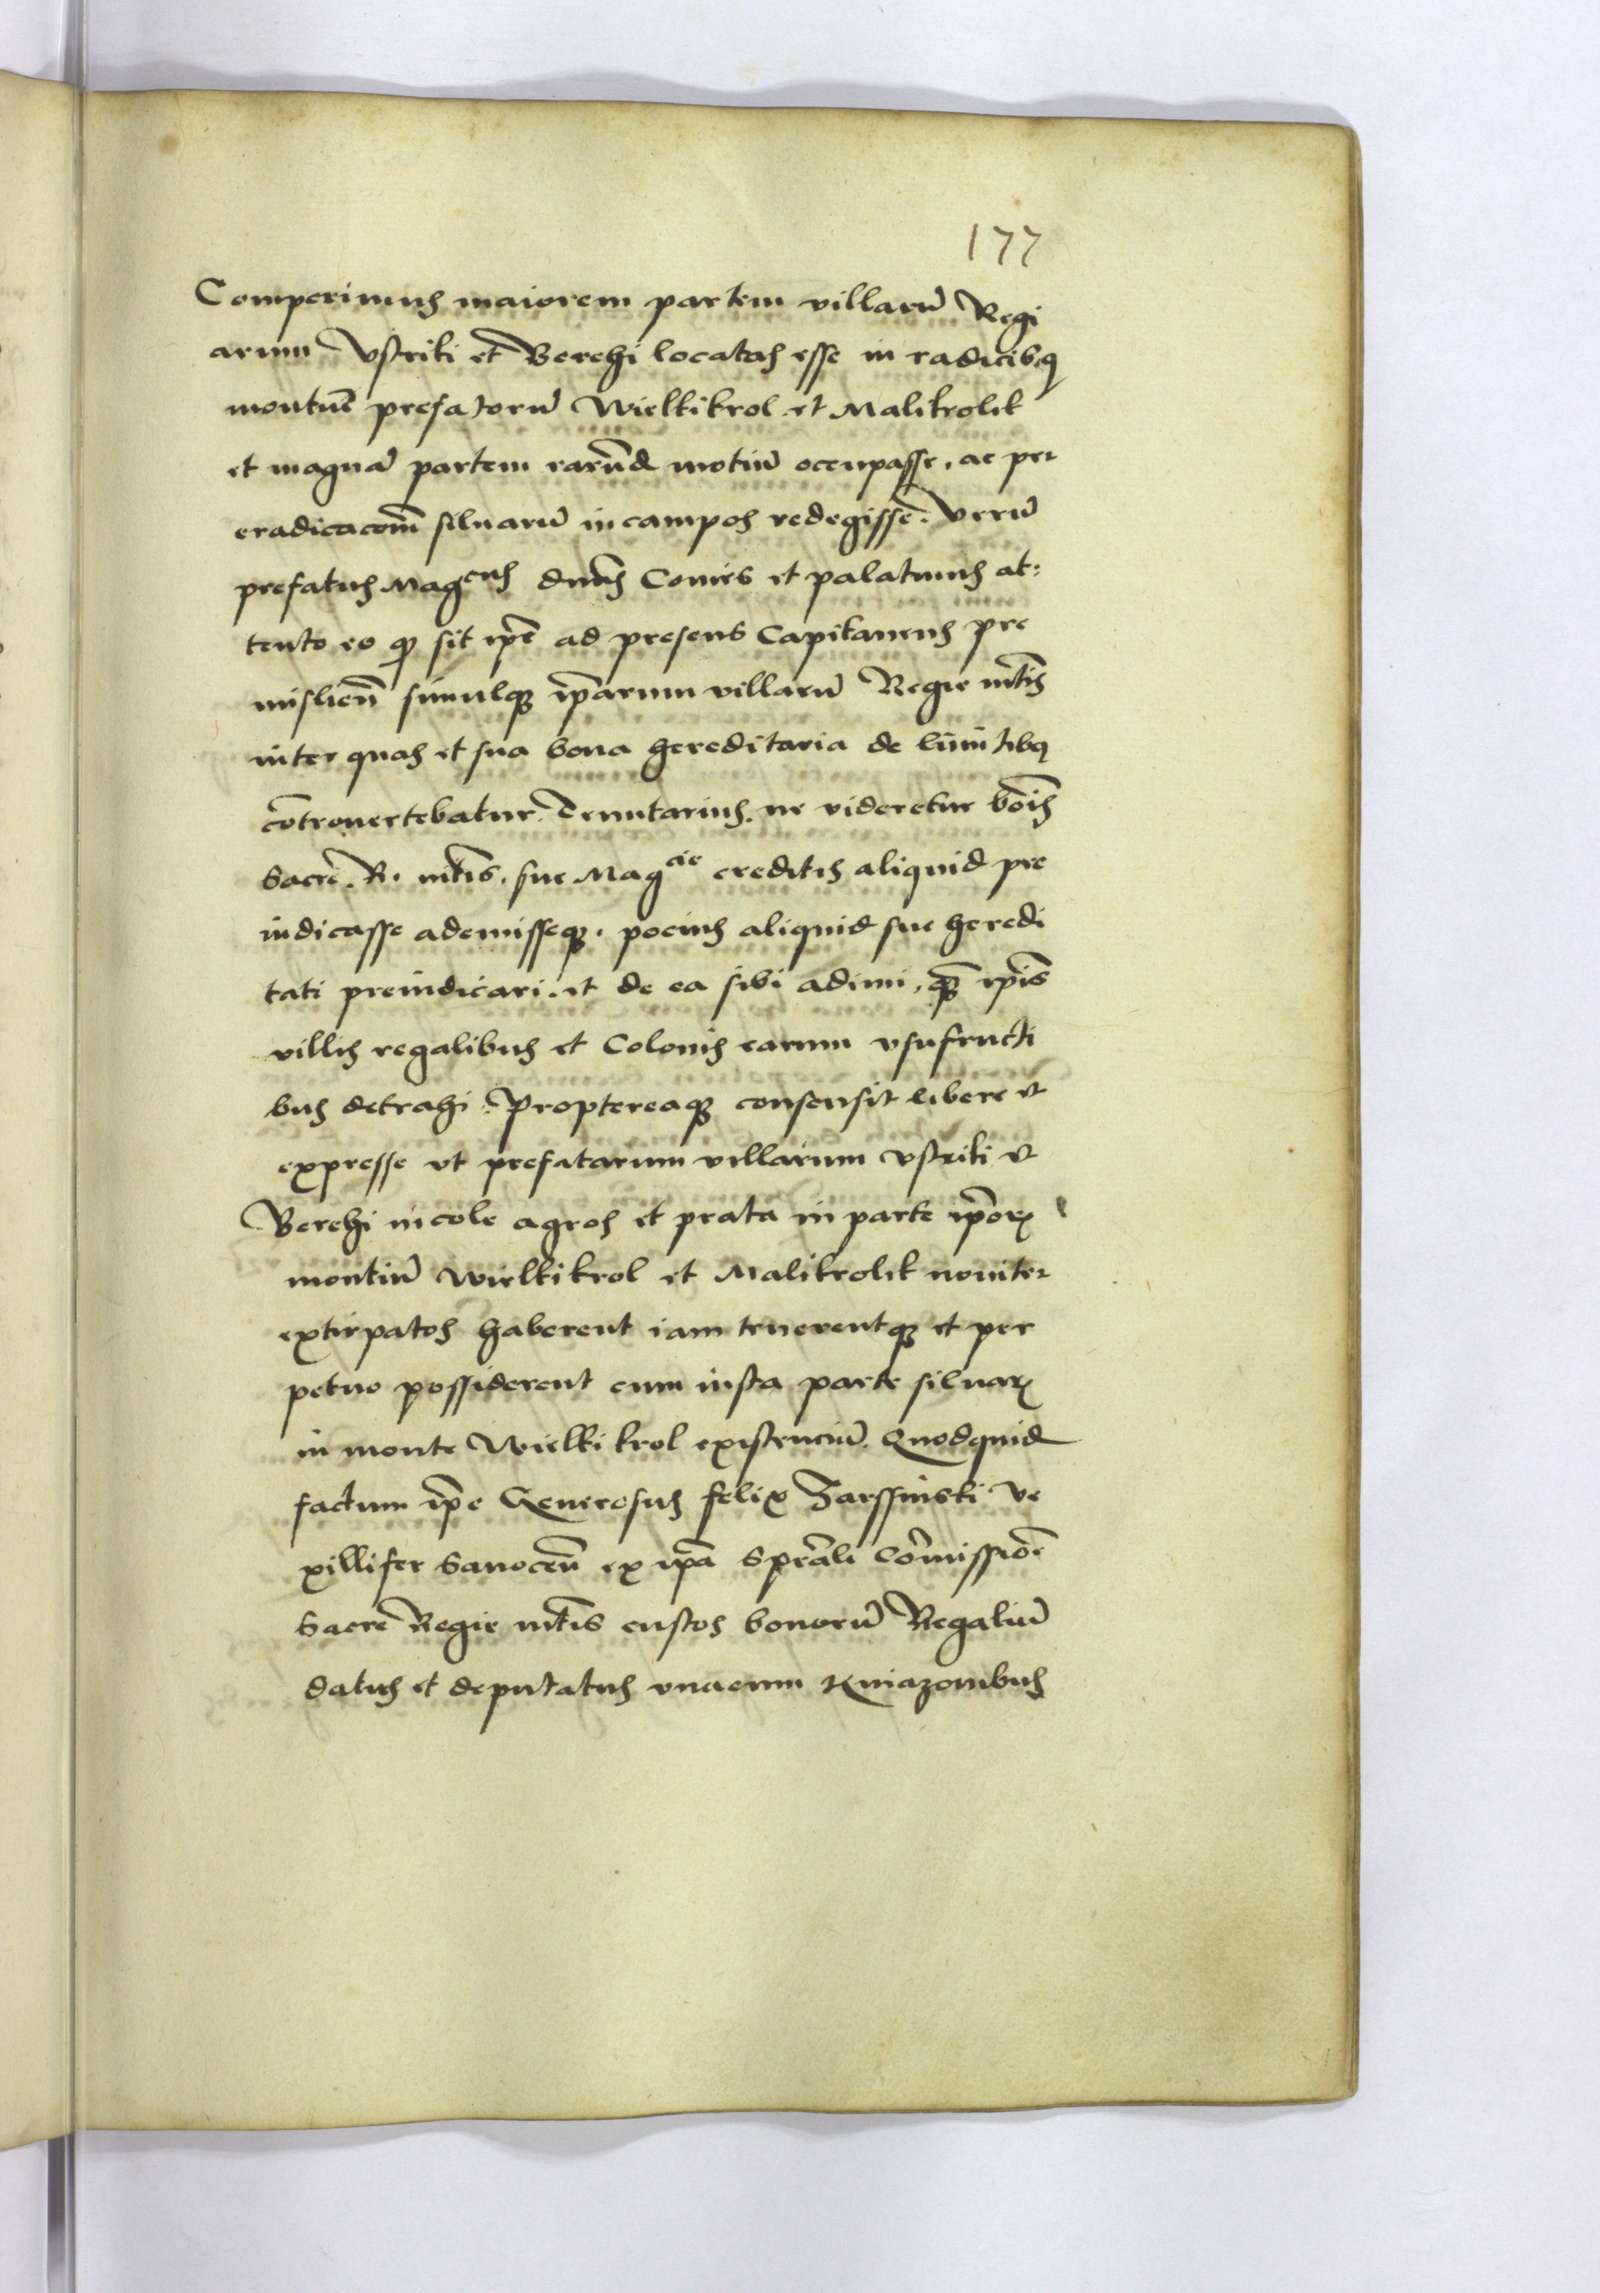 177
Comperimus maiorem partem villarū Regi
arum Vstriki et Berehi locatas esse in radicibq
montiūm prefatorū Wielkikrol et Malikrolik
et magnā partem earūnd motiū occupasse, ac per
eradicacom̄ siluarū in campos redegisse. Verū
prefatus Mag^cus dnūs Comes et palatinus at:
tento eo qp sit ip̄e ad presens Capitaneus pre
mislien̄ simulq ip̄arum villarū Regie mt̄is
inter quas et sua bona hereditaria de limitibq
cōtrouertebatur. Tenutarius. ne videretur bōis
Sacre. R. mt̄is. sue Mag^cie creditis aliquid pre
iudicasse ademisseq. pocius aliquid sue heredi
tati preiudicari. et de ea sibi adimi, q̄ ip̄is
villis regalibus et Colonis earum vsufructi
bus detrahi. Proptereaq consensit libere et
expresse vt prefatarum villarum vstriki et
Berehi incole agros et prata in parte ip̄orꝝ
montiū Wielkikrol et Malikrolik nouiter
extirpatos haberent iam tenerentq et per
petuo possiderent cum iusta parte siluarꝝ
in monte Wielki krol existenciū. Quodquid
factum ip̄e Generosus felix Zarssinski ve
xillifer Sanocen̄ ex ip̄a Spēali Cōmissiōe
Sacre Regie mt̄is custos bonorū Regaliū
datus et deputatus vnacum Kniazonibus